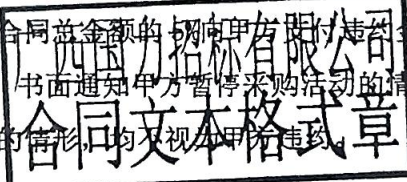 合同总金额的 5%向甲方支付违约金
广西国力招标有限公司
书面通知甲方暂停采购活动的情
合同文本格式章
的情形，均不视为甲方违约。